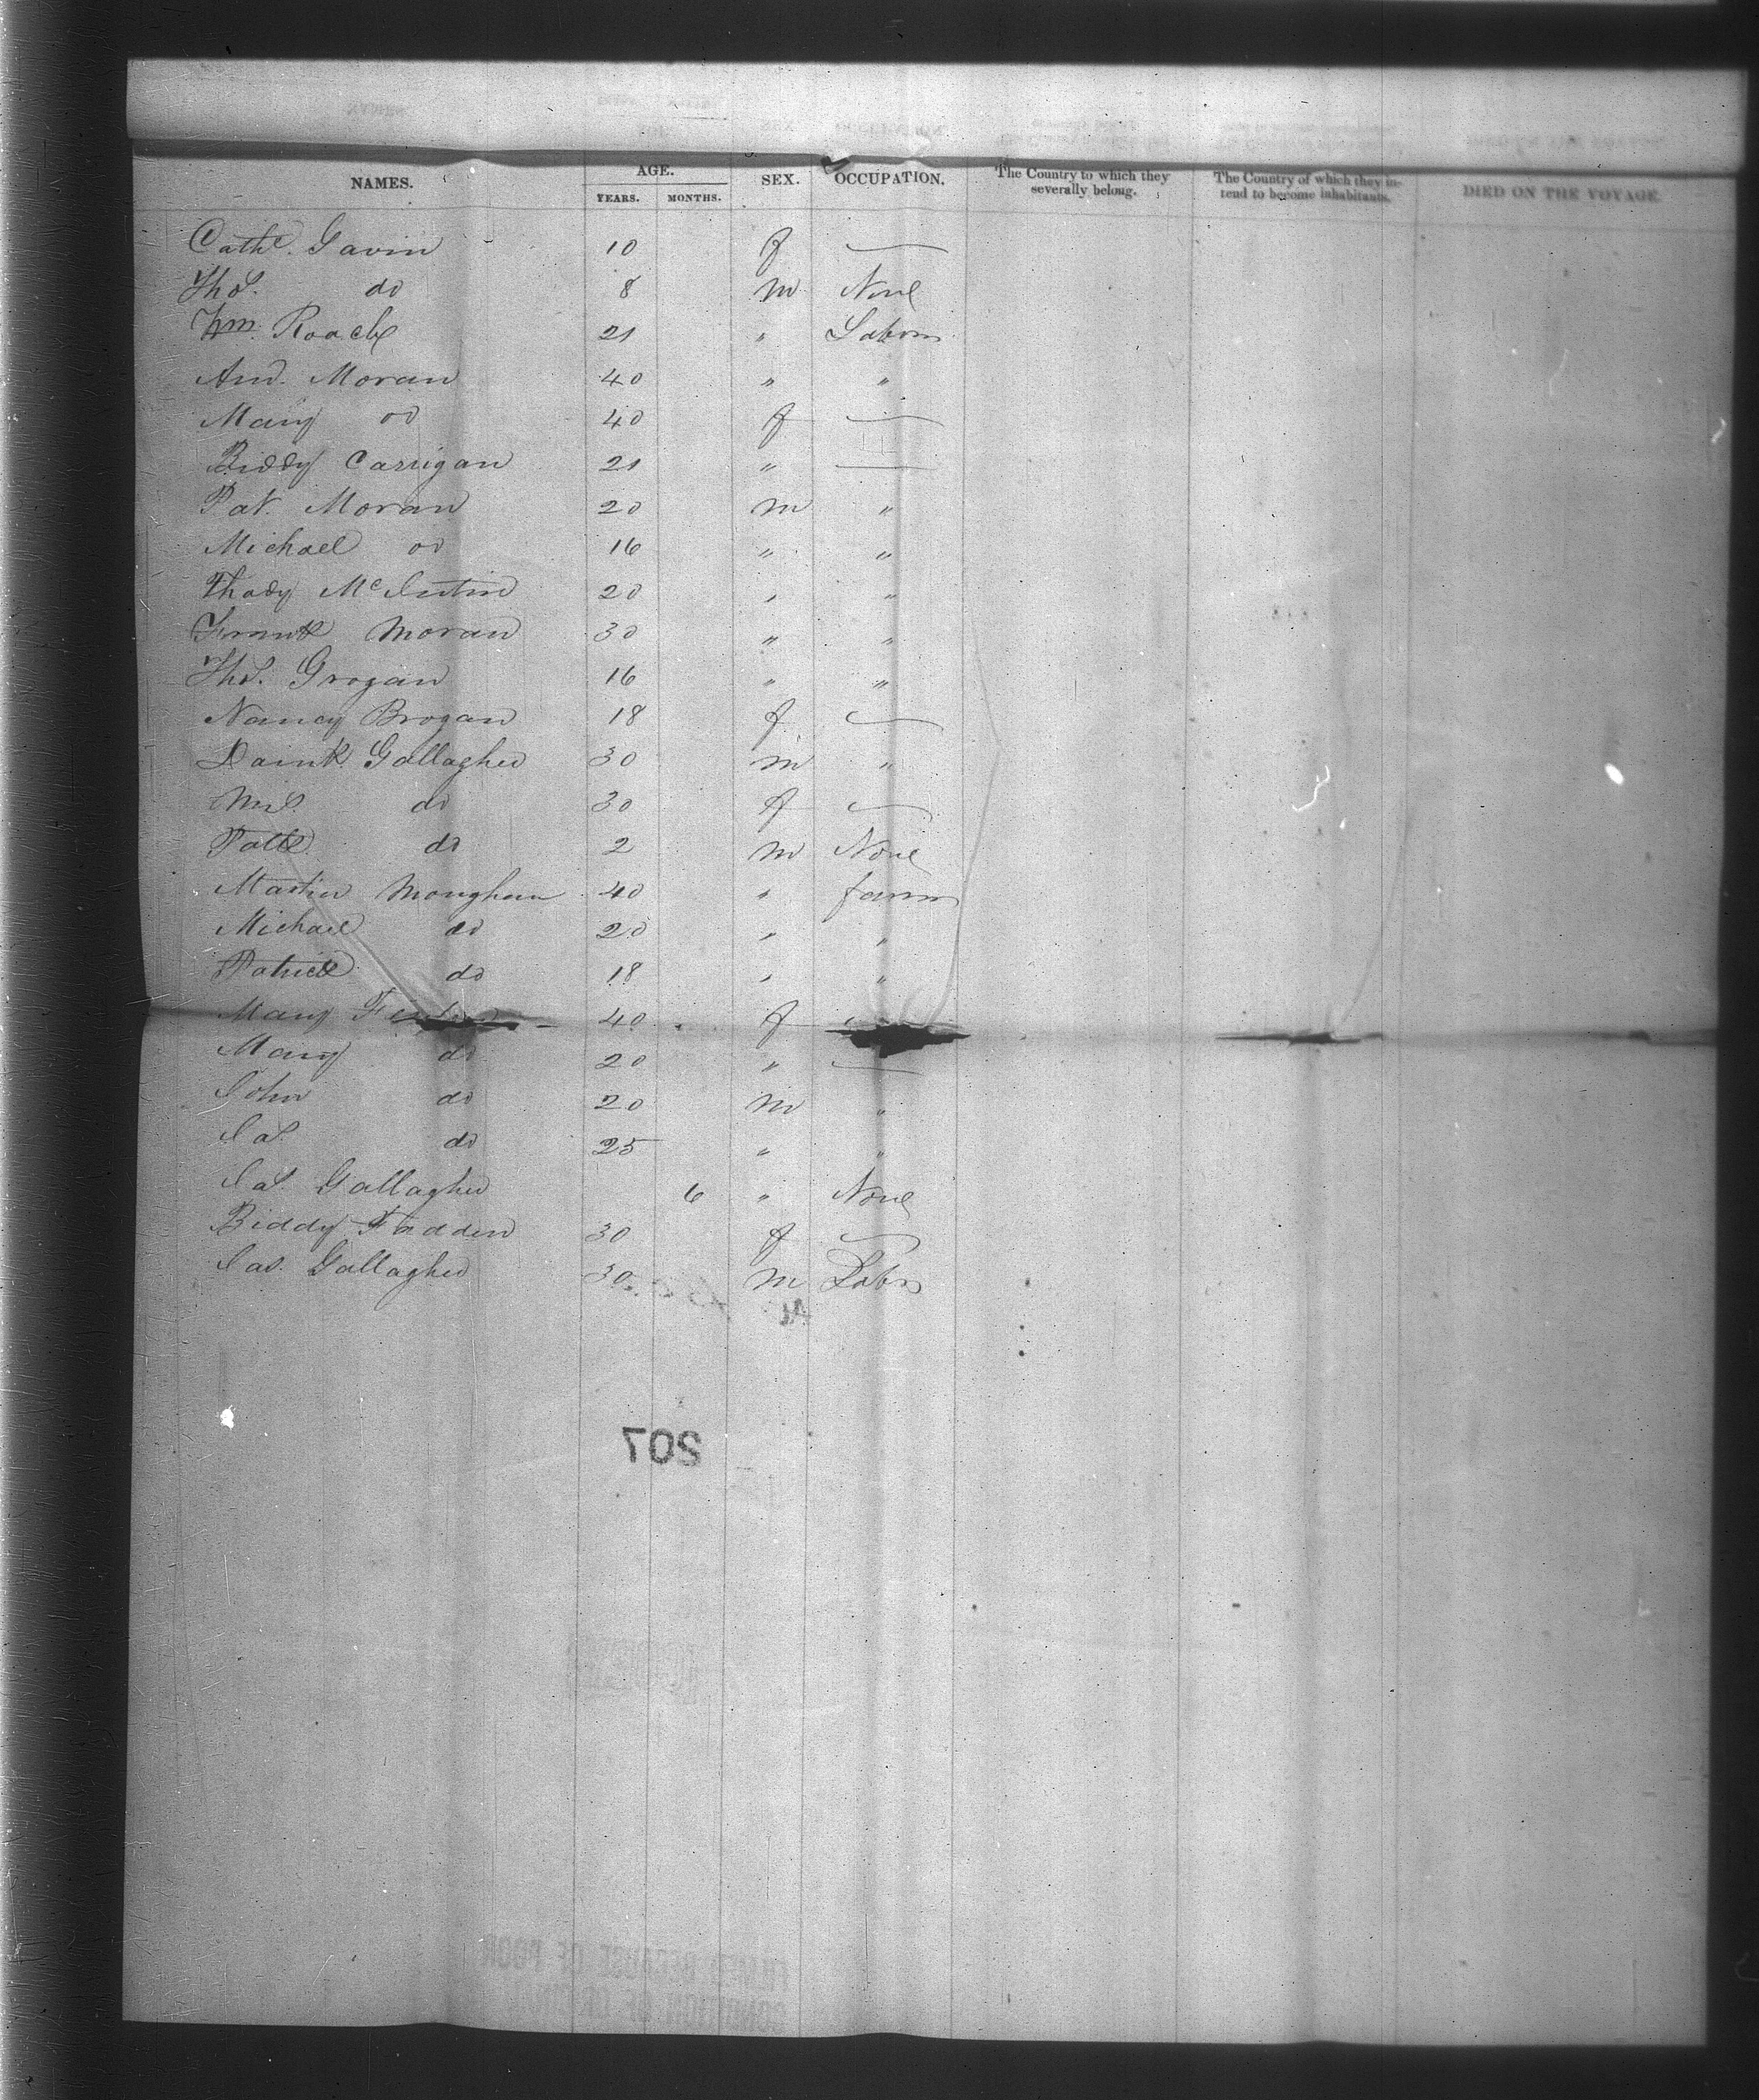 NAMES. AGE. YEARS. MONTHS. SEX. OCCUPATION. The Country to which they severally belong. The Country of which they intend to become inhabitants. DIED ON THE VOYAGE.
Cathe. Gavin 10 f —
Thos. do 8 m None
Wm. Roach 21 " Labom
And. Moran 40 " "
Mary do 40 f —
Biddy Carrigan 21 " —
Pat. Moran 20 m "
Michael do 16 " "
Thady Mc 20 " "
Frank Moran 30 " "
Thos. Grogan 16 " "
Nancy Brogan 18 f —
Gallagher 30 m "
Mrs. do 30 f —
Patk do 2 m None
Martin Monghan 40 " farm
Michael do 20 " "
Patrick do 18 " "
Mary 40 f
Mary do 20 " —
John do 20 m "
Jas. do 25 " "
Jas. Gallagher 6 " None
Biddy Fadden 30 f —
Jas. Gallagher 30 m Labr
207
FILMED BECAUSE OF POOR
CONDITION OF